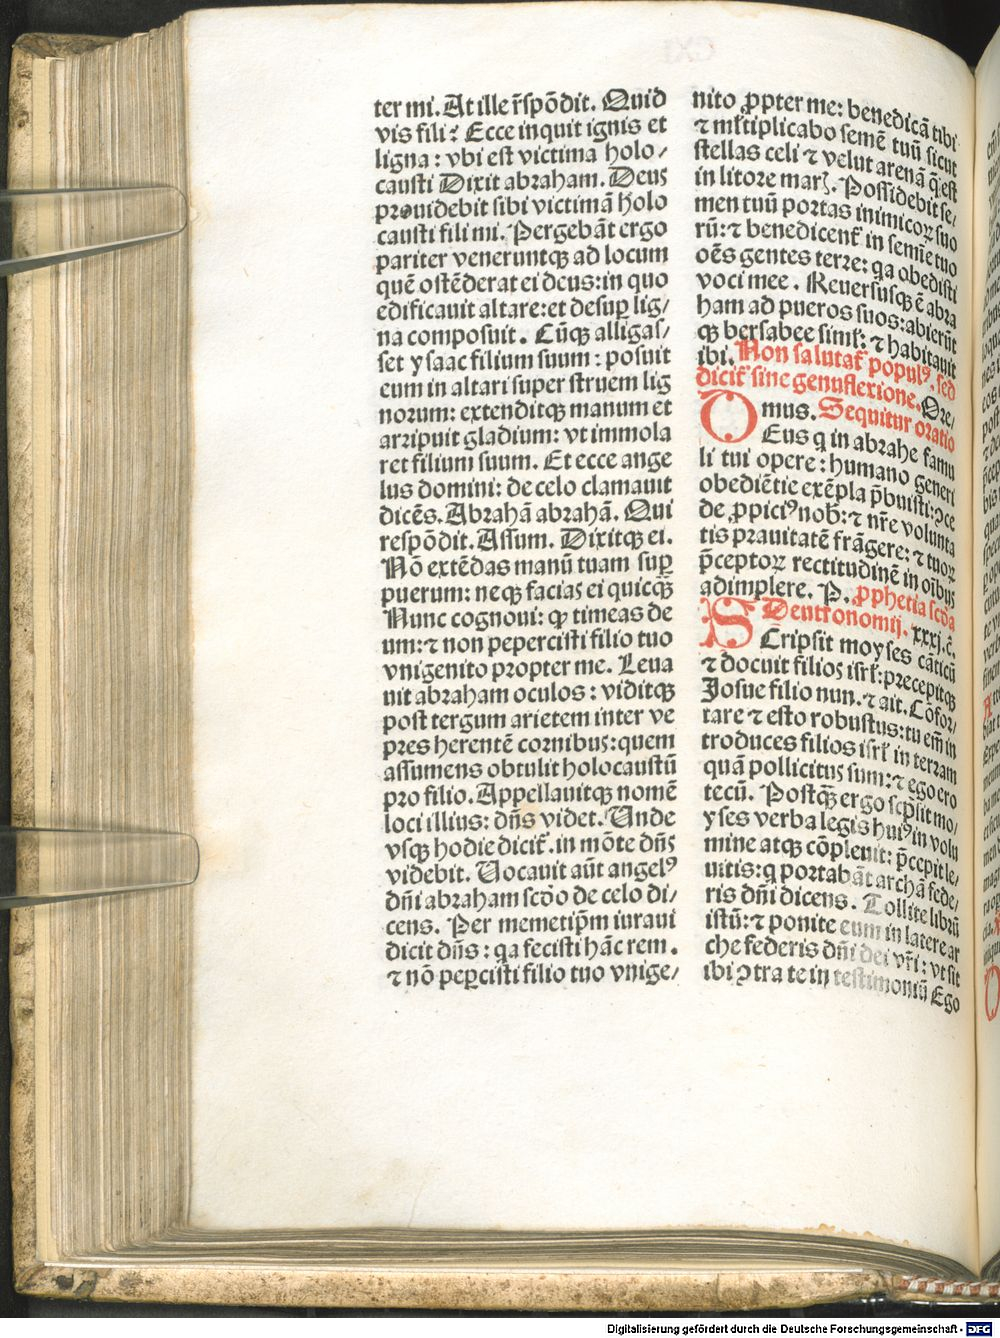 ter mi. At ille r̄spōdit. Quid
vis fili? Ecce inquit ignis et
ligna : vbi est victima holo/
causti Dixit abraham. Deus
prouidebit sibi victimā holo
causti fili mi. Pergebāt ergo
pariter veneruntqꝫ ad locum
quē ostēderat ei deus: in quo
edificauit altare: et desuꝑ lig/
na composuit. Cūqꝫ alligas/
set ysaac filium suum : posuit
eum in altari super struem lig
norum: extenditqꝫ manum et
arripuit gladium: vt immola
ret filium suum. Et ecce ange
lus domini: de celo clamauit
dicēs. Abrahā abrahā. Qui
respōdit. Assum. Dixitqꝫ ei.
Nō extēdas manū tuam suꝑ
puerum: neqꝫ facias ei quicqꝫ̄
Nunc cognoui: ꝙ timeas de
um: ⁊ non pepercisti filio tuo
vnigenito propter me. Leua
uit abraham oculos : viditqꝫ
post tergum arietem inter ve
pres herentē cornibus: quem
assumens obtulit holocaustū
pro filio. Appellauitqꝫ nomē
loci illius: dn̄s videt. Unde
vsqꝫ hodie dicit᷑. in mōte dn̄s
videbit. Uocauit aūt angelꝰ
dn̄i abraham scd̄o de celo di/
cens. Per memetip̄m iuraui
dicit dn̄s : qa fecisti hāc rem .
⁊ nō peꝑcisti filio tuo vnige/
nito ꝓpter me: benedicā tibi
⁊ ml̄tiplicabo semē tuū sicut
stellas celi ⁊ velut arenā q̄ est
in litore marꝭ. Possidebit se/
men tuū portas inimicoꝝ suo
rū: ⁊ benedicent᷑ in semīe tuo
oēs gentes terre: qa obedisti
voci mee. Reuersusqꝫ ē abra
ham ad pueros suos: abierūt
qꝫ bersabee siml᷑: ⁊ habitauit
ibi. Non salutat᷑ populꝰ. sed
dicit᷑ sine genuflexione. Ore/
mus. Sequitur oratio
DEus q in abrahe famu
li tui opere: humano generi
obediētie exēpla p̄buisti: ꝯce
de ꝓpiciꝰ nob̄: ⁊ nr̄e volunta
tis prauitatē frāgere: ⁊ tuoꝝ
p̄ceptoꝝ rectitudinē in oībus
adimplere. P. ꝓphetia scd̄a
Deutronomij. xxxj. c̄.
SCripsit moyses cāticū
⁊ docuit filios isrl᷑: precepitqꝫ
Josue filio nun. ⁊ ait. Cōfor/
tare ⁊ esto robustus: tu em̄ in
troduces filios isrl᷑ in terram
quā pollicitus sum: ⁊ ego ero
tecū. Postqꝫ̄ ergo scp̄sit mo/
yses verba legis huiꝰ in volu
mine atqꝫ cōpleuit: p̄cepit le/
uitis: q portabāt archā fede/
ris dn̄i dicens. Tollite librū
istū: ⁊ ponite eum in latere ar
che federis dn̄i dei vr̄i: vt sit
ibi ꝯtra te in testimoniū Ego
Digitalisierung gefördert durch die Deutsche Forschungsgemeinschaft - DFG